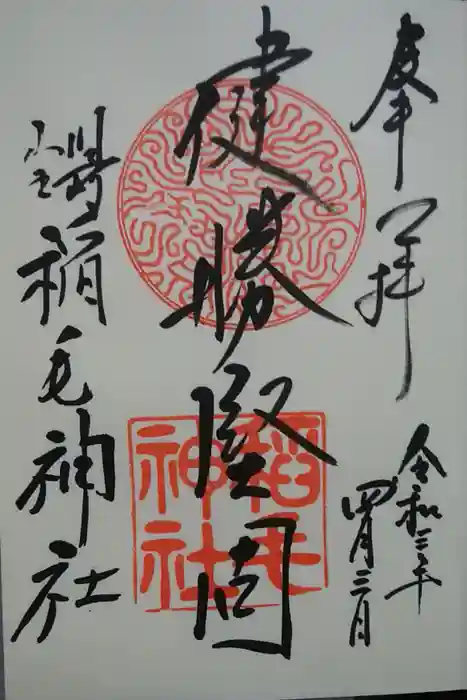 奉拝
令和三年
四月三日
健勝堅固
稲毛
神社
川崎
山王
稲毛神社